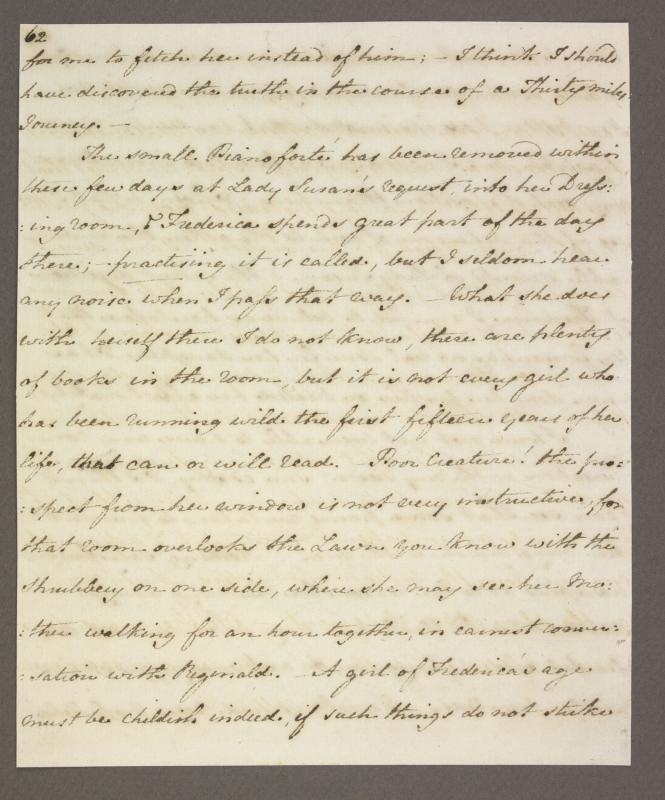 62
for me to fetch her instead of him; – I think I should
have discovered the truth in the course of a Thirty miles
Journey. –
The small Pianoforté has been removed within
these few days at Lady Susan's request, into her Dress:
:ing room, & Frederica spends great part of the day
there; – practising it is called, but I seldom hear
any noise when I pass that way. – What she does
with herself there I do not know, there are plenty
of books in the room, but it is not every girl who
has been running wild the first fifteen years of her
life, that can or will read. – Poor Creature! the pro:
:spect from her window is not very instructive, for
that room overlooks the Lawn you know with the
Shrubbery on one side, where she may see her Mo:
:ther walking for an hour together, in earnest conver:
:sation with Reginald. – A girl of Frederica's age
must be childish indeed, if such things do not strike